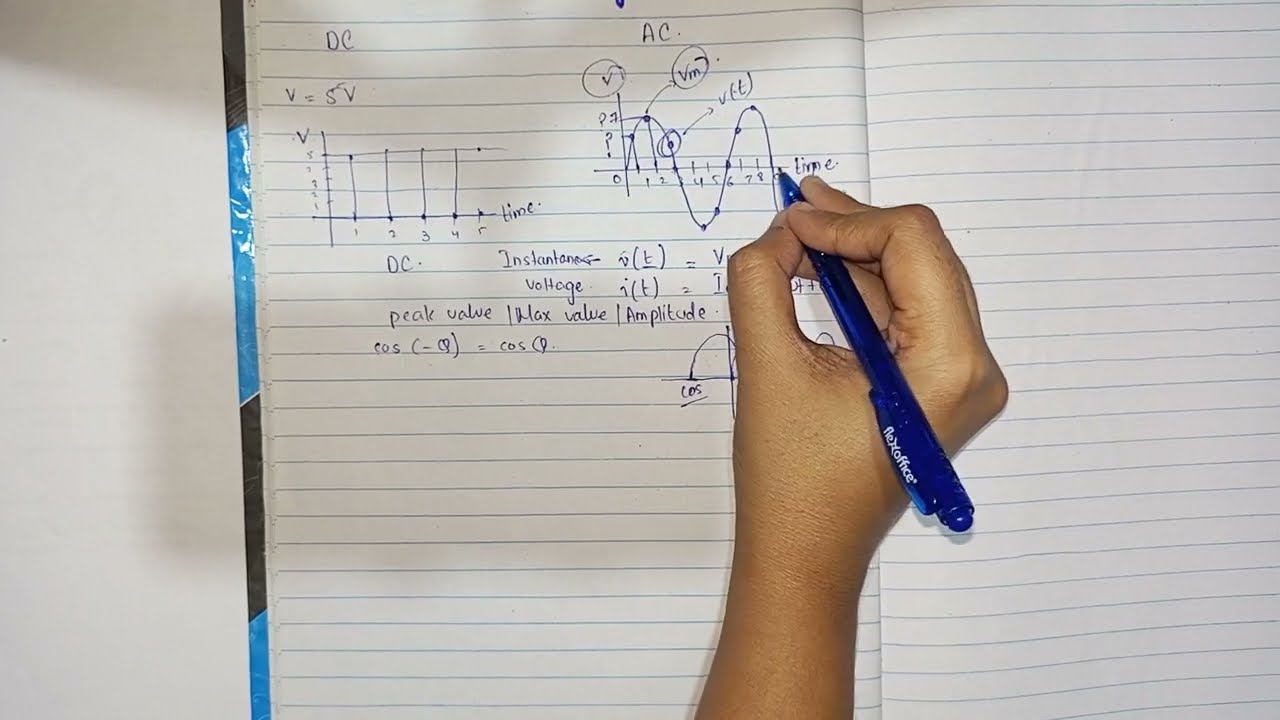 DC
AC.
V = 5V
V
5
3
2
1
1 2 3 4 5
time.
DC.
V
Vm
v(t)
P.7
?
0 1 2 4 5 6 7 8
time.
Instantaneous v(t) = V
Voltage. i(t) = I
peak value | Max value | Amplitude.
cos (-Q) = cos Q.
cos
flexoffice